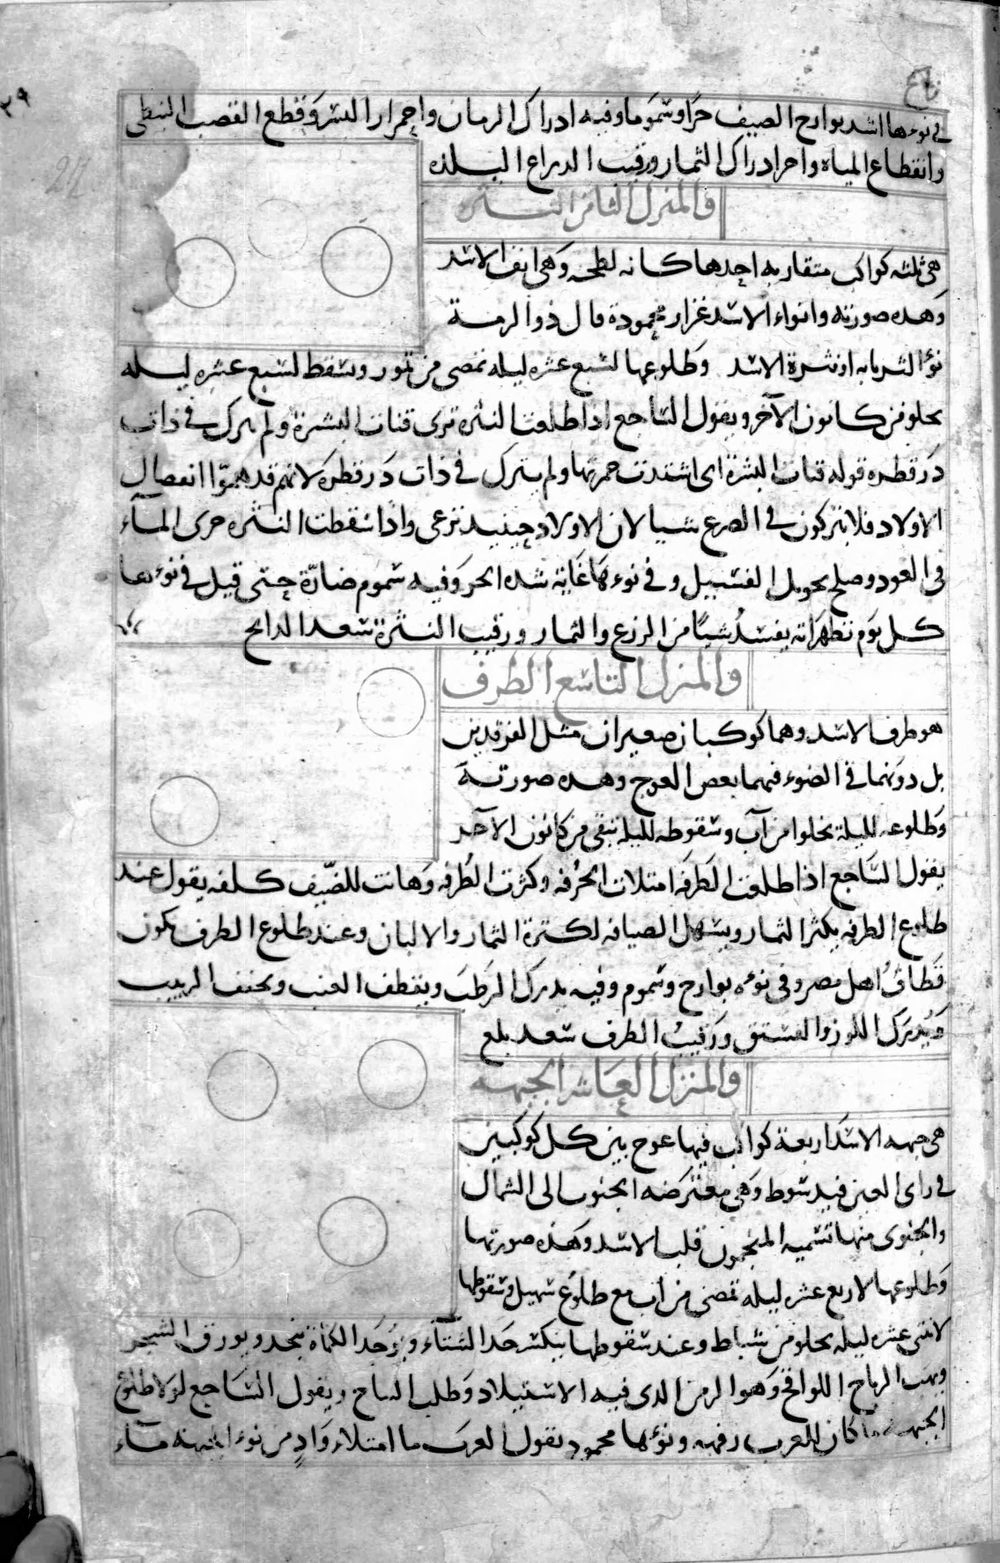 ٣٩
في نوءها اشد بوارح الصيف حرا وسموما وفيه ادراك الرمان واحمرار البسر وقطع القصب النبطي
وانقطاع المياه واخر ادراك الثمار ورقيب الذراع البلدة
والمنزل الثامن النثرة
هي ثلثه كواكب متقاربه احدها كانه لطخه وهي انف الاسد
وهذه صورته وانواء الاسد غزار محمودة قال ذو الرمة
نوء الثريا به او نثرة الاسد وطلوعها لسبع عشره ليله تمضي من تموز وسقط لسبع عشره ليله
يخلو من كانون الآخر ويقول الساجع اذا طلعت النثره ترى قنات البسرة ولم يترك في ذات
در قطره قوله قنات البسرة اى اشتدت حمرتها ولم يترك في ذات در قطره لانهم قد هموا انفصال
الاولاد فلا يتركون في الضرع شيا لان الاولاد حينيذ ترعى واذا سقطت النثره جرى المآء
في العود وصلح تحويل الفسيل وفي نوءها غايه شده الحر وفيه سموم ضارة حتى قيل في نوءها
كل يوم تظهر انه يفسد شيئا من الزرع والثمار ورقيب النثرة سعد الذابح
والمنزل التاسع الطرف
هو طرف الاسد وهما كوكبان صغيران مثل الفرقدين
بل دونهما في الضوء فيهما بعض العوج وهذه صورته
وطلوعه لليلة يخلوا من آب وسقوطه لليلة تبقى من كانون الآخر
يقول الساجع اذا طلعت الطرفة امتلات الخرفه وكثرت الطرفه وهانت للضيف كلفه يقول عند
طلوع الطرفه يكثر الثمار ويسهل الضيافه لكثرة الثمار والالبان وعند طلوع الطرف يكون
قطاف اهل مصر وفي نوءه بوارح وسموم وفيه يدرك الرطب ويقطف العنب ويجفف الزبيب
ويدرك اللوز والفستق ورقيب الطرف سعد بلع
والمنزل العاشر الجبهه
هي جبهه الاسد اربعة كواكب فيها عوج بين كل كوكبين
في راى العين قيد سوط وهي معترضه الجنوب الى الشمال
والجنوبى منها تسميه المنجمون قلب الاسد وهذه صورتها
وطلوعها لاربع عشره ليله تمضي من آب مع طلوع سهيل وسقوطها
لاثنتي عشره ليله يخلو من شباط وعند سقوطها ينكسر حد الشتآء ويوجد الكماة بنجد ويورق الشجر
ويهب الرياح اللواقح وهو الزمن الذى فيه الاستيلاد وطلب النتاج ويقول الساجع لولا طلوع
الجبهه ما كان للعرب رفهه ونوءها محمود يقول العرب ما امتلاء واد من نوء الجبهة مآء